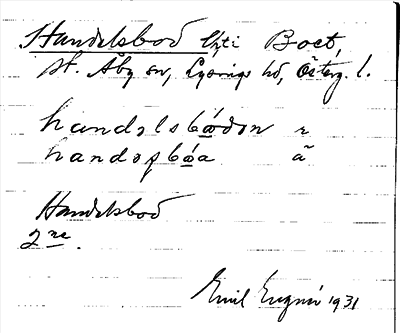 Handelsbod i Boet,
St. Åby sn, Lysings hd, Österg. l.
handəlsbωdən r
handəʃbωa ä
Handelsbod
2 ne.
Emil 1931